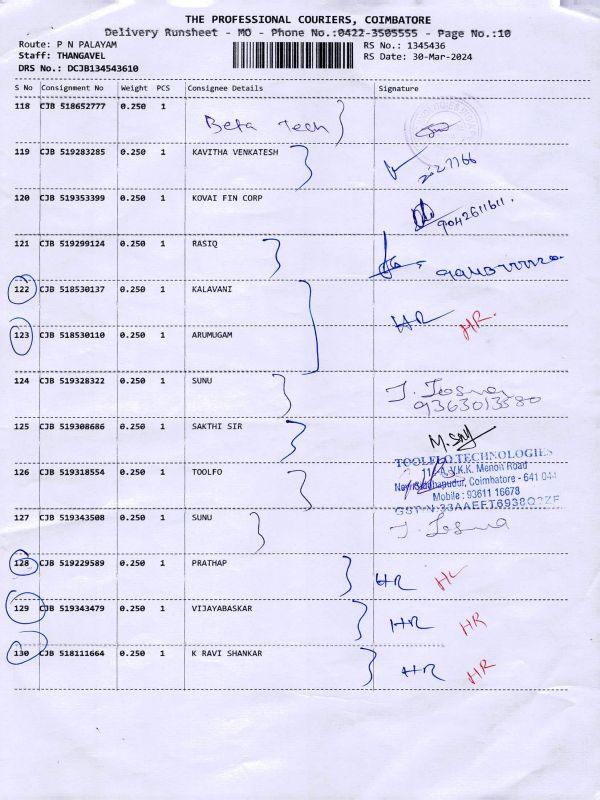 THE PROFESSIONAL COURIERS, COIMBATORE
Delivery Runsheet - MO - Phone No.:0422-3505555 - Page No.:10
Route: P N PALAYAM RS No.: 1345436
Staff: THANGAVEL RS Date: 30-Mar-2024
DRS No.: DCJB134543610
S No Consignment No Weight PCS Consignee Details Signature
118 CJB 518652777 0.250 1 Beta Tech
119 CJB 519283285 0.250 1 KAVITHA VENKATESH
120 CJB 519353399 0.250 1 KOVAI FIN CORP
9042611611.
121 CJB 519299124 0.250 1 RASIQ
122 CJB 518530137 0.250 1 KALAVANI
HR HR.
123 CJB 518530110 0.250 1 ARUMUGAM
124 CJB 519328322 0.250 1 SUNU J. Josna
9363013580
125 CJB 519308686 0.250 1 SAKTHI SIR
TOOLFLO TECHNOLOGIES
V.K.K. Menon Road
126 CJB 519318554 0.250 1 TOOLFO
Coimbatore - 641 044
Mobile : 93611 16678
GSTN:33AAEFT6938Q2ZF
127 CJB 519343508 0.250 1 SUNU J. Josna
128 CJB 519229589 0.250 1 PRATHAP HR HR
129 CJB 519343479 0.250 1 VIJAYABASKAR HR HR
130 CJB 518111664 0.250 1 K RAVI SHANKAR HR HR